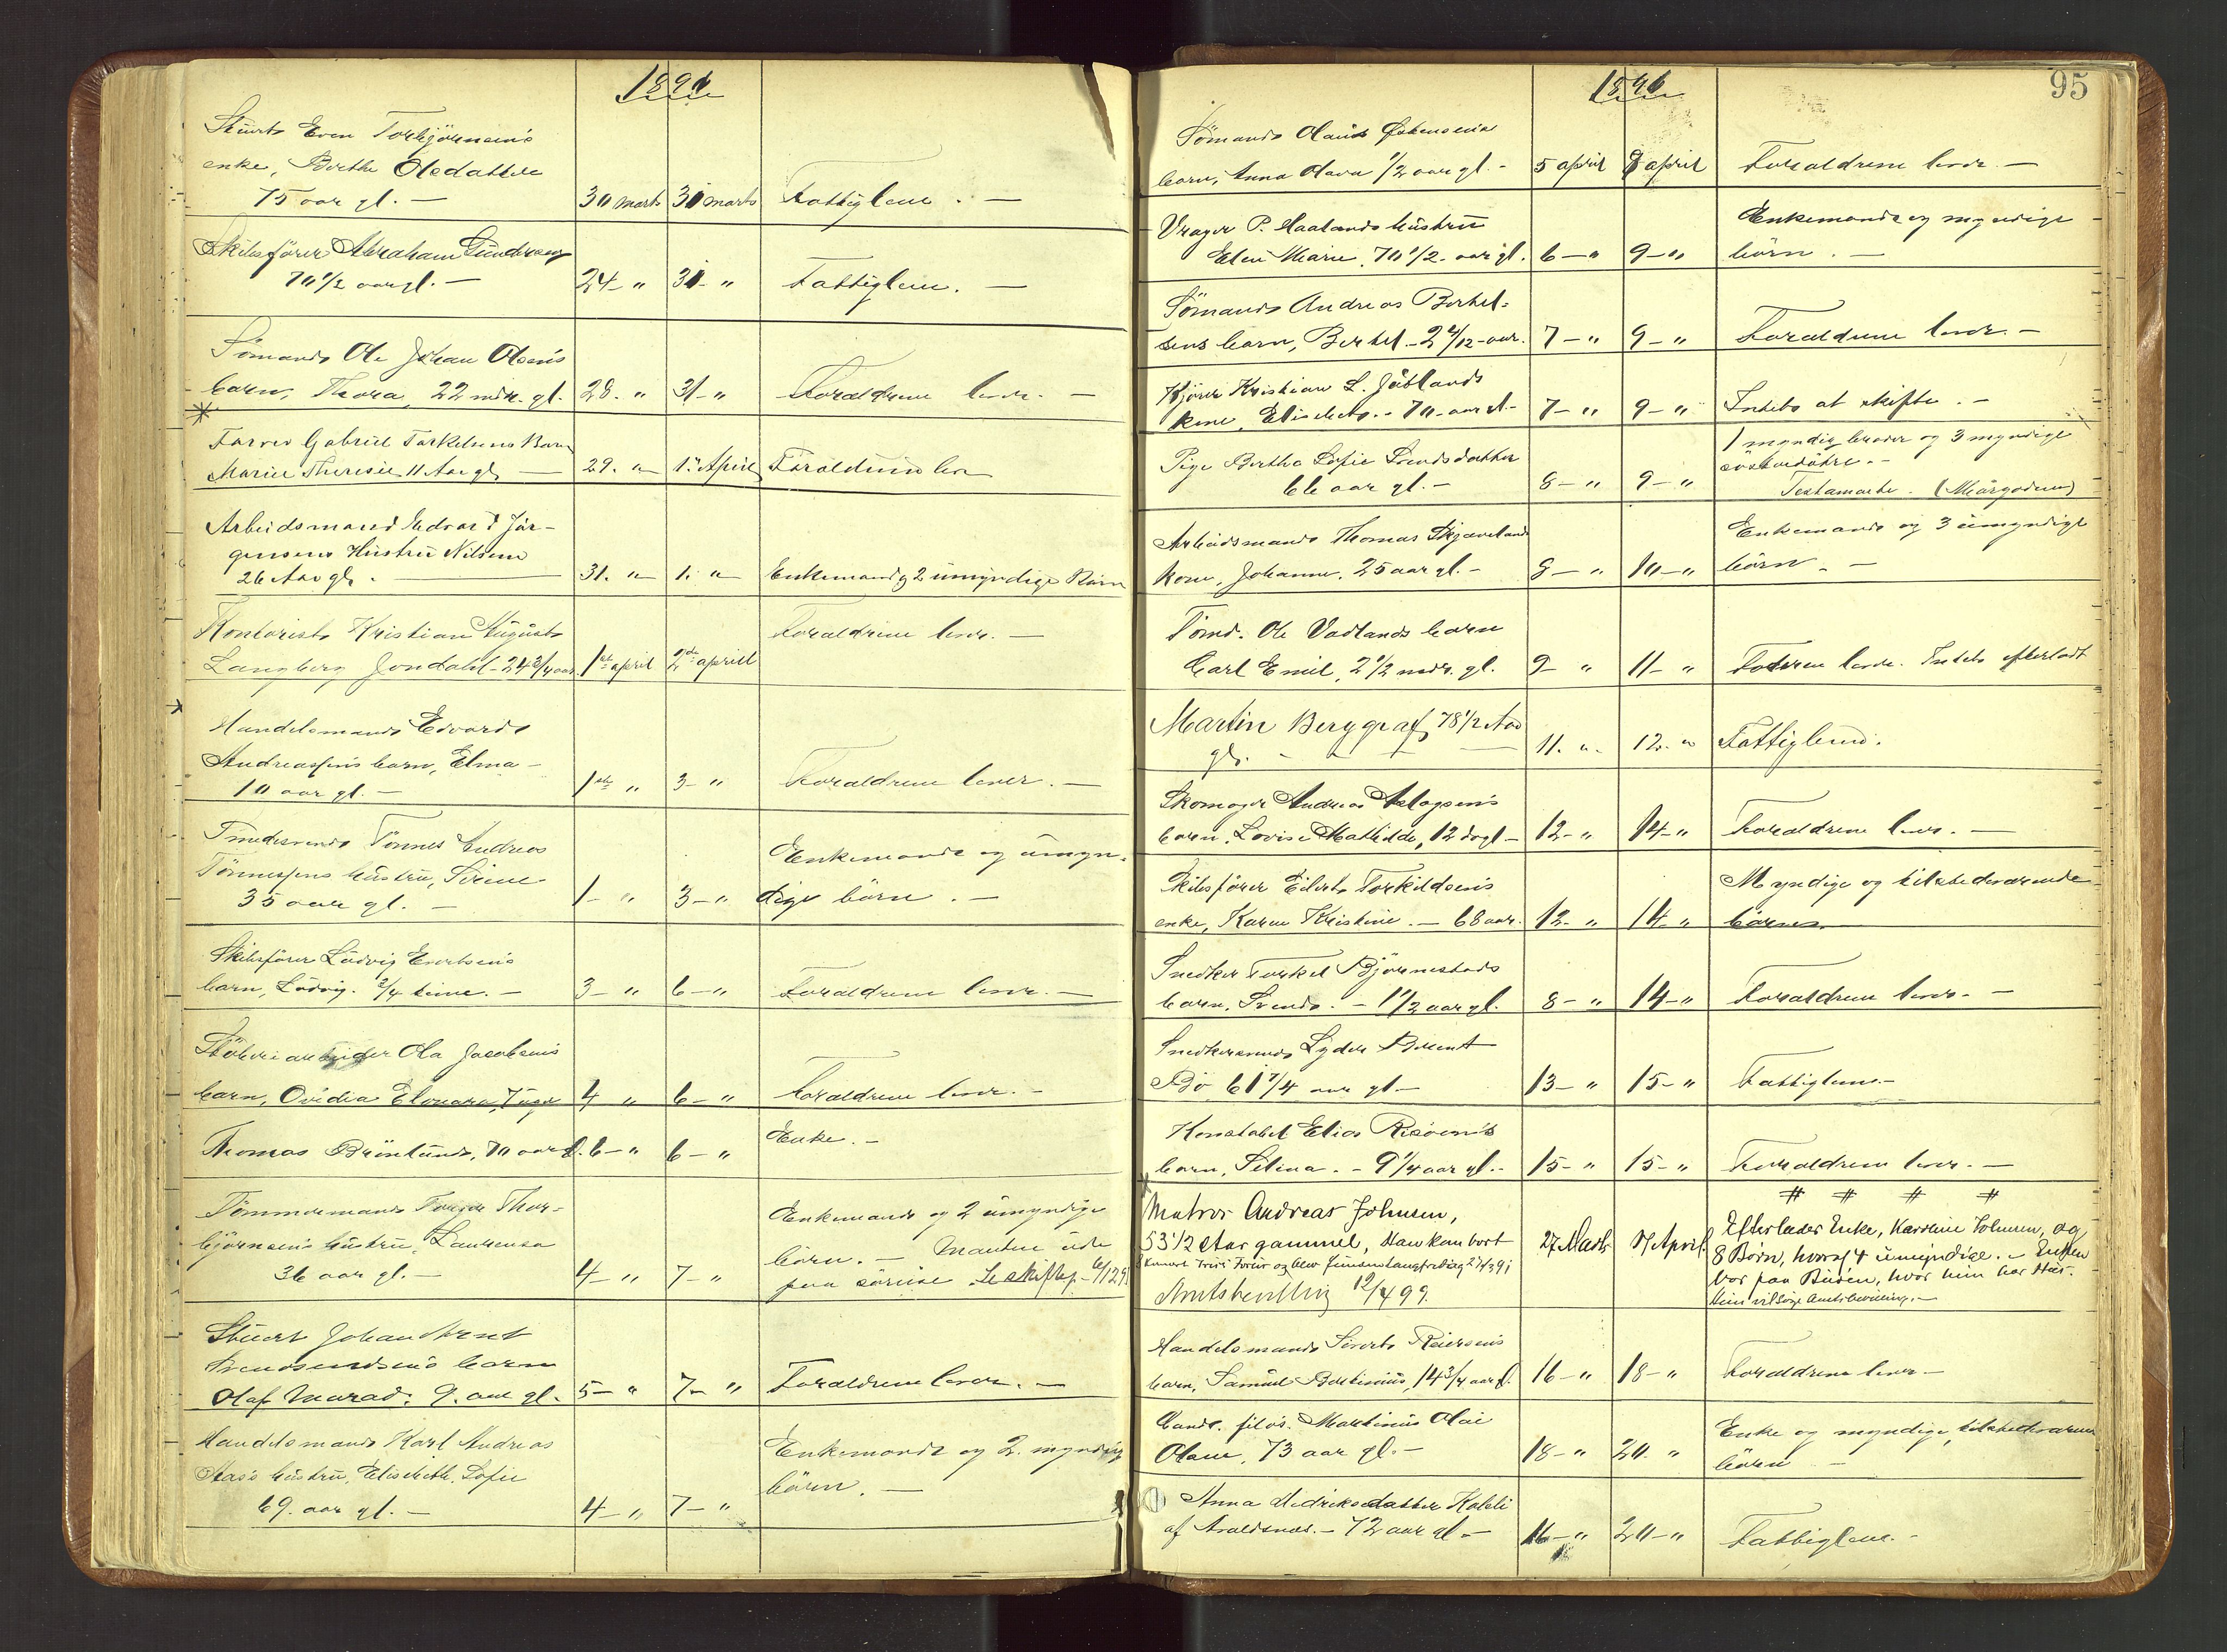 1891
Stuert Even Torbjörnsens
enke, Berthe Olsdatter
75 aar gl. —
30 marts 31 marts Fattiglem. —
Skibsfører Abraham Gundersen
70 1/2 aar gl. —
24 — " 31 — " Fattiglem. —
Sömands Ole Johan Olsens
barn, Thora, 22 mdr. gl.
28. " 31 — " Foraldrene lever. —
Farver Gabriel Torkelsens Barn
Marie Theresie 11 Aar gl
29. " 1. April Foraldrene lev
Arbeidsmand Edvard Jör-
gensens Hustru Nilsine
26 Aar gl.
31. " 1. " Enkemand og 2 umyndige Börn
Kontorist Kristian August
Langberg Jondahl - 24 3/4 aar
1ste april 2de april Foraldrene lever. —
Handelsmands Edvard
Andreassens barn, Elma —
10 aar gl. —
1ste " 3 — " Foraldrene lever. —
Smedesvends Tönnes Andreas
Tönnessens hustru, Sirine
35 aar gl. —
1 — " 3 — " Enkemand og umyn-
dige börn. —
Skibsfører Ludvig Evertsens
barn, Ludvig. 3/4 time. —
3 — " 6 — " Foraldrene lever. —
Stöberiarbeider Ola Jacobsens
barn, Ovidia Elonara, 7 uger
4 " 6 — " Foraldrene lever. —
Thomas Brönlund, 70 aar gl. 6 — " 6 — " Enke. —
Tömmermands Torger Thor-
björnsens hustru, Laurensa
36 aar gl. —
4 — " 7 — " Enkemand og 2 umyndige
börn. —
Stuert Johan Bernt
Svendsendsens barn
Olaf Marad. 9. aar gl.
5 — " 7 — " Foraldrene lever. —
Handelsmands Karl Andreas
Aas's hustru, Elisabeth Sofie
69. aar gl. —
4 — " 7 — " Enkemand og 2. myndig
börn. —
1891
95
Sömands Olaus Østensens
barn, Anna Olava 1/2 aar gl. —
5 april 8 april Foraldrene lever. —
Vrager P. Haalands hustru
Elen Marie, 70 1/2 aar gl.
6 — " 9 — " Enkemand og myndige
börn. —
Sömands Andreas Berthel-
sens barn, Berthel. - 2 4/12 aar.
7 — " 9 — " Foraldrene lever. —
Kjörer Kristian L. Jåtlands
kone, Elisabeth. - 70 aar gl. —
7 — " 9 — " Intet at skifte. —
Pige Berthe Sofie Svendsdatter
66 aar gl. —
8 — " 9 — " 1 myndig broder og 3 myndige
söskendbörn. —
Testamente.
Arbeidsmands Thomas Skjævelands
kone, Johanne, 25 aar gl. —
8 — " 10 — " Enkemand og 3 umyndige
börn. —
Tömd. Ole Vadlands barn
Carl Emil, 2 1/2 mdr. gl.
9 — " 11 — " Foraldrene lever. Intet efterladt
Martin Berggraf, 78 1/2 Aar
gl. —
11. " 12. " Fattiglem.
Skomager Andreas Aslagsens
barn, Lovise Mathilde, 12 dage —
12 — " 14 — " Foraldrene lever. —
Skibsfører Eilert Torkildsens
enke, Karen Kristine. — 68 aar.
12 — " 14 — " Myndige og tilstedeværende
börn.
Snedker Torkel Björnestads
barn, Svend. - 1 1/2 aar gl.
8 — " 14 — " Foraldrene lever. —
Snedkersvend Lyder Berent
Bö 61 3/4 aar gl —
13 — " 15 — " Fattiglem. —
Konstabel Elias Risöens
barn, Selina. - 9 1/4 aar gl. —
15 — " 15 — " Foraldrene lever. —
Matros Andreas Johnsen,
53 1/2 Aar gammel, Han kom bort
27 Marts 17 April Efterlader Enke, Karoline Johnsen, og
8 Börn, hvoraf 4 umyndige. - Enken
bor paa Buöen, hvor hun har Hus.
Hun vil söge Amtsbevilling. —
Amtsbevilling 12/4 99.
Handelsmands Sivert Reiersens
barn, Samuel Bertinius, 14 3/4 aar gl.
16 — " 18 — " Foraldrene lever —
Cand. filos. Martinus Olai
Olsen, 73 aar gl. —
18 — " 20 " Enke og myndige, tilstedeværen
börn —
Anna Hidriksdatter
af Avaldsnæs. — 72 aar gl —
16 — " 20 — " Fattiglem. —